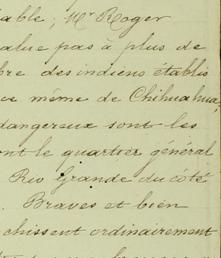 able; Mr Roger
alue pas à plus de
bre des indiens établis
ce même de Chihuahua,
dangereux sont les
ont le quartier général
Rio Grande du côté
Braves et bien
chissent ordinairement